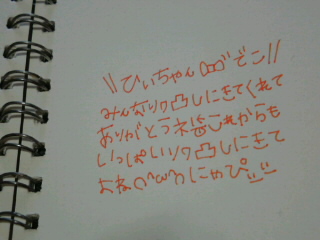 \\ひぃちゃんร้ంぞこ//
みんなリワ凸しにきてくれて
ありがとうネ皆これからも
いっぱいリワ凸しにきて
おね(^ω^)にゃぴ